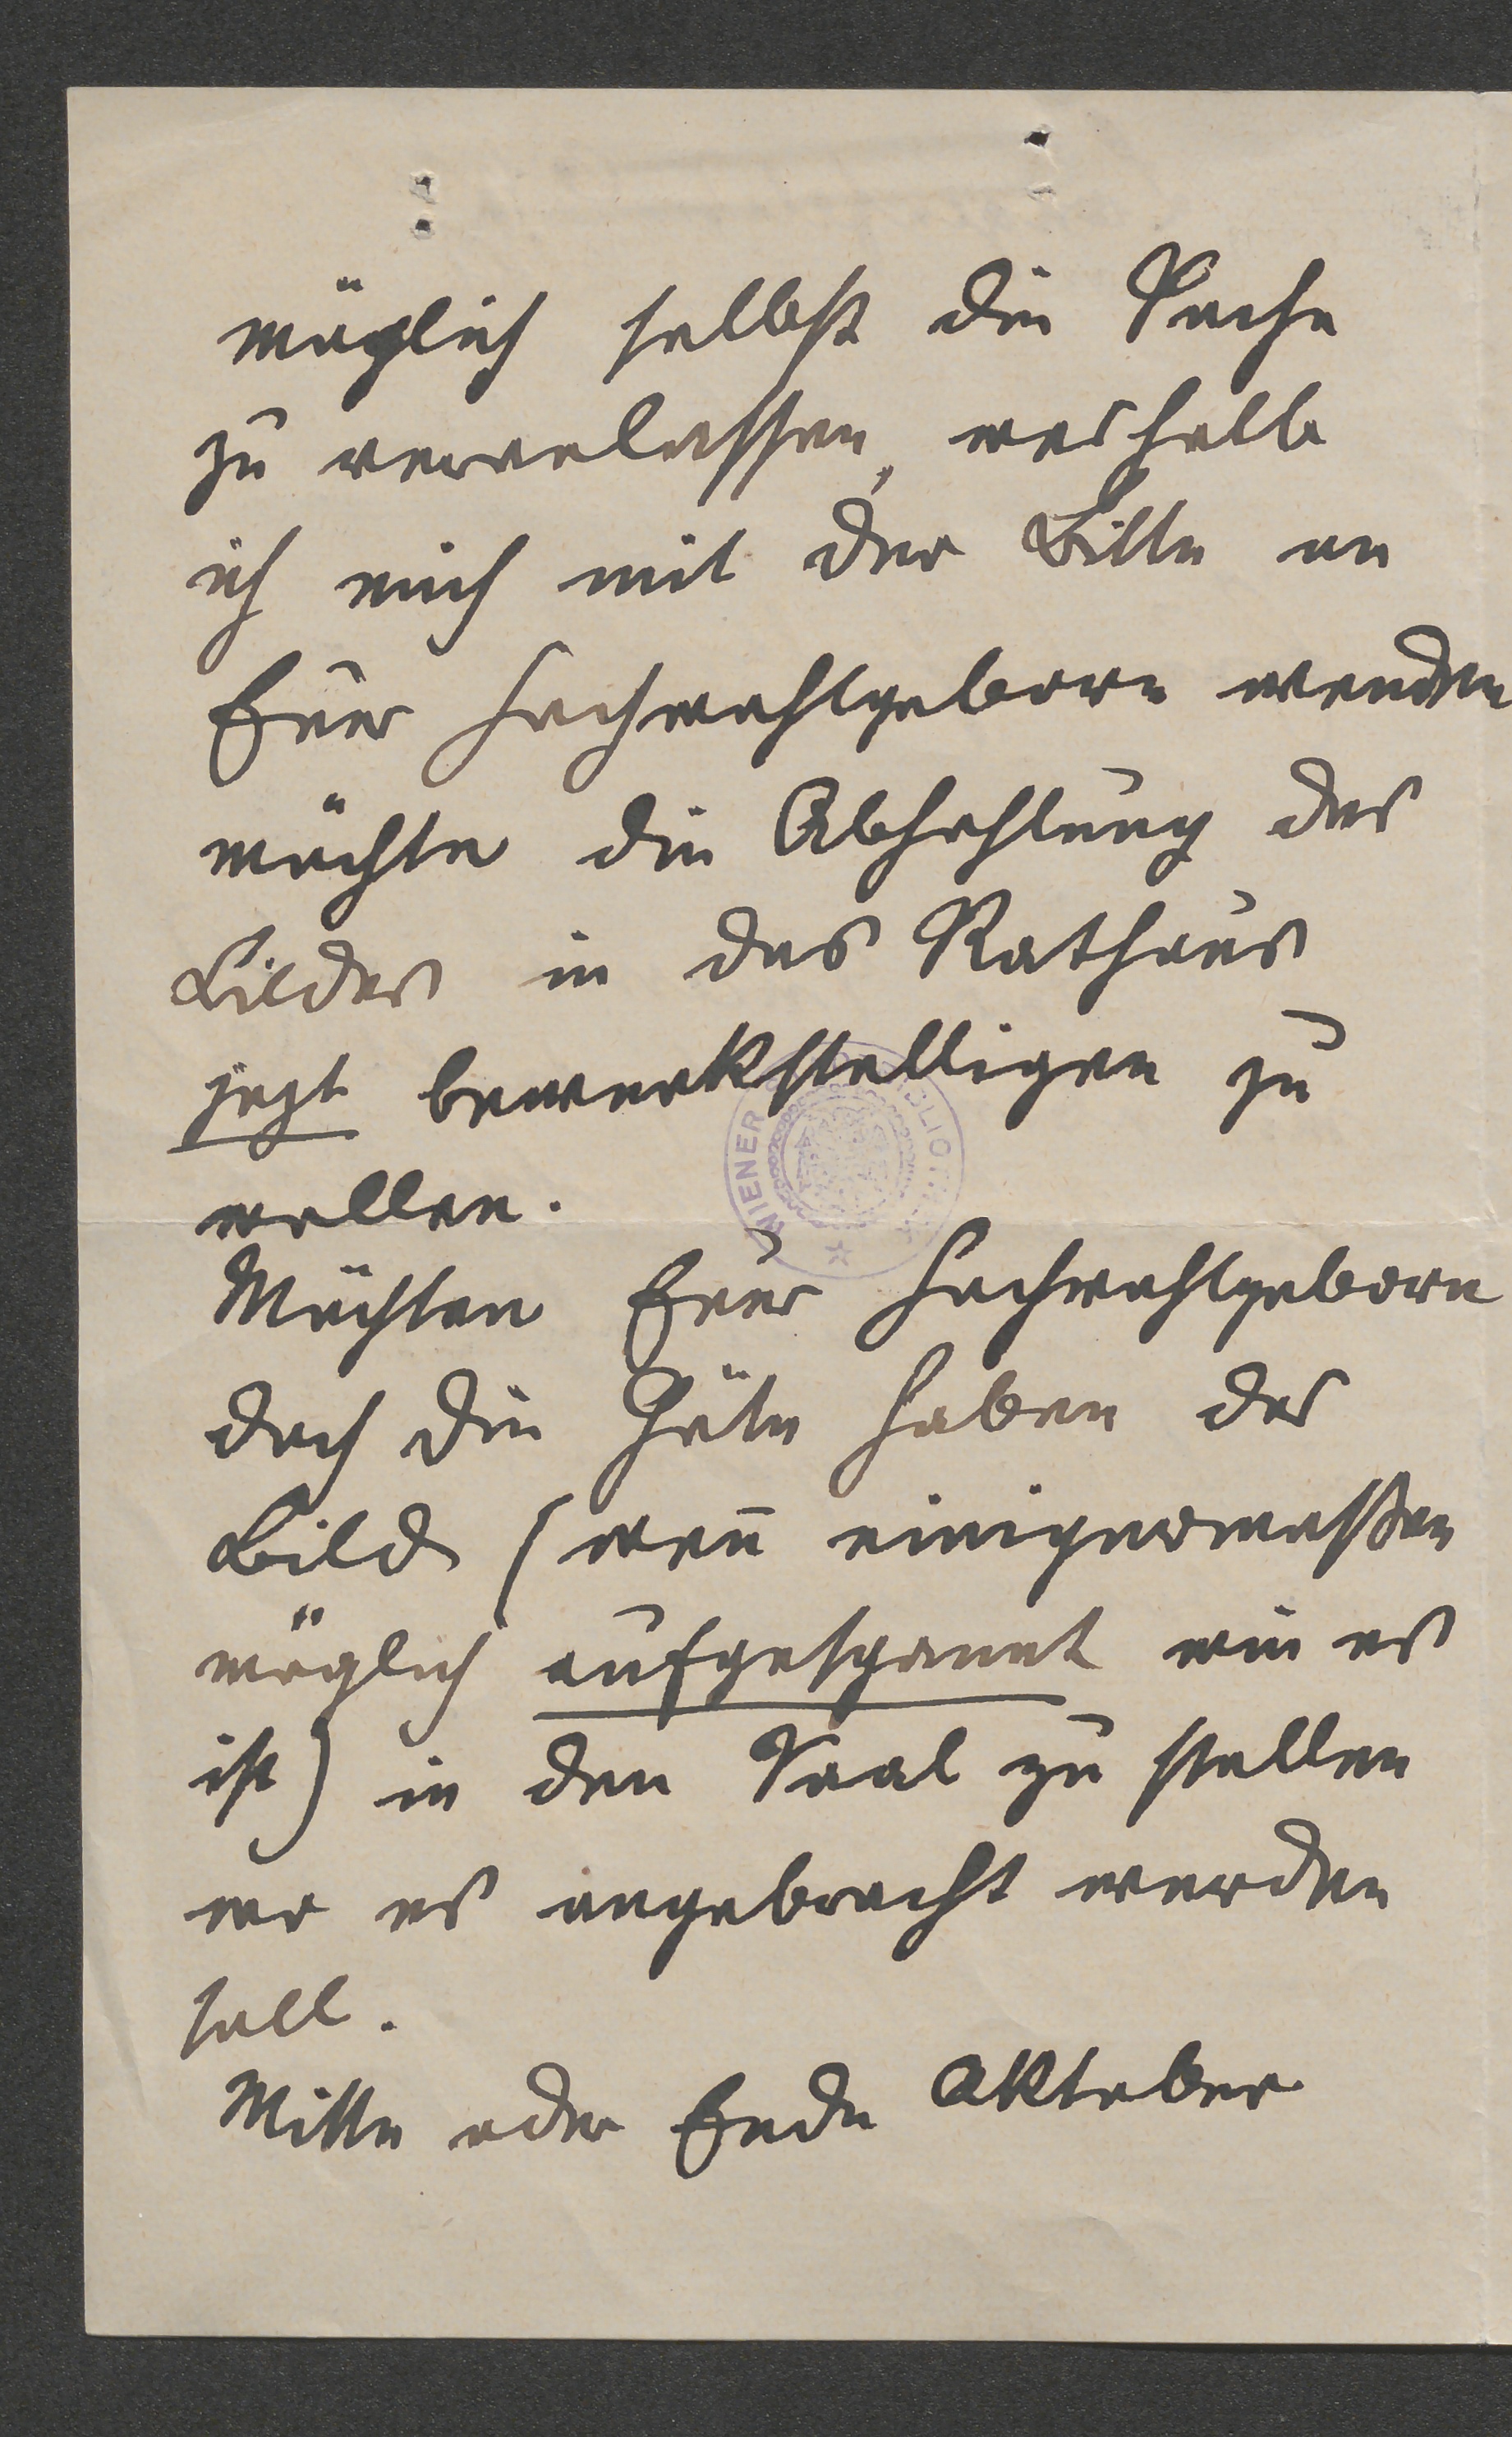 möglich selbst die Sache
zu veranlassen, weshalb
ich mich mit der Bitte an
Euer Hochwohlgeborn wenden
möchte die Abhohlung des
Bildes in das Rathaus
jezt bewerkstelligen zu
wollen.
WIENER
Möchten Euer Hochwohlgeborn
doch die Güte haben das
Bild (wen̄ einigermaßen
möglich aufgespannt wie es
ist) in den Saal zu stellen
wo es angebracht werden
soll.
Mitte oder Ende Oktober